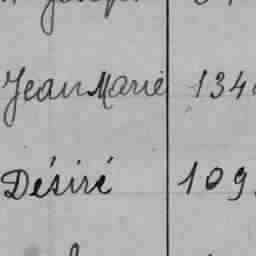 Jean Marie 134
Désiré 109